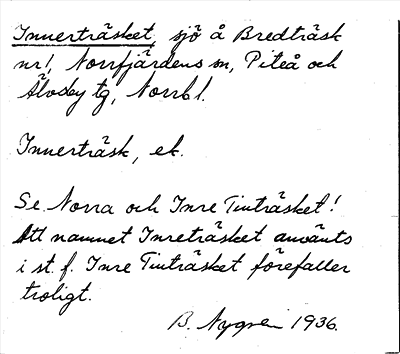 Innerträsket, sjö å Bredträsk
nr 1, Norrfjärdens sn, Piteå och
Älvsby tg, Norrb l.
Innerträsk, ek.
Se Norra och Inre Tinträsket!
Att namnet Inreträsket använts
i st. f. Inre Tinträsket förefaller
troligt.
B. Nygren 1936.